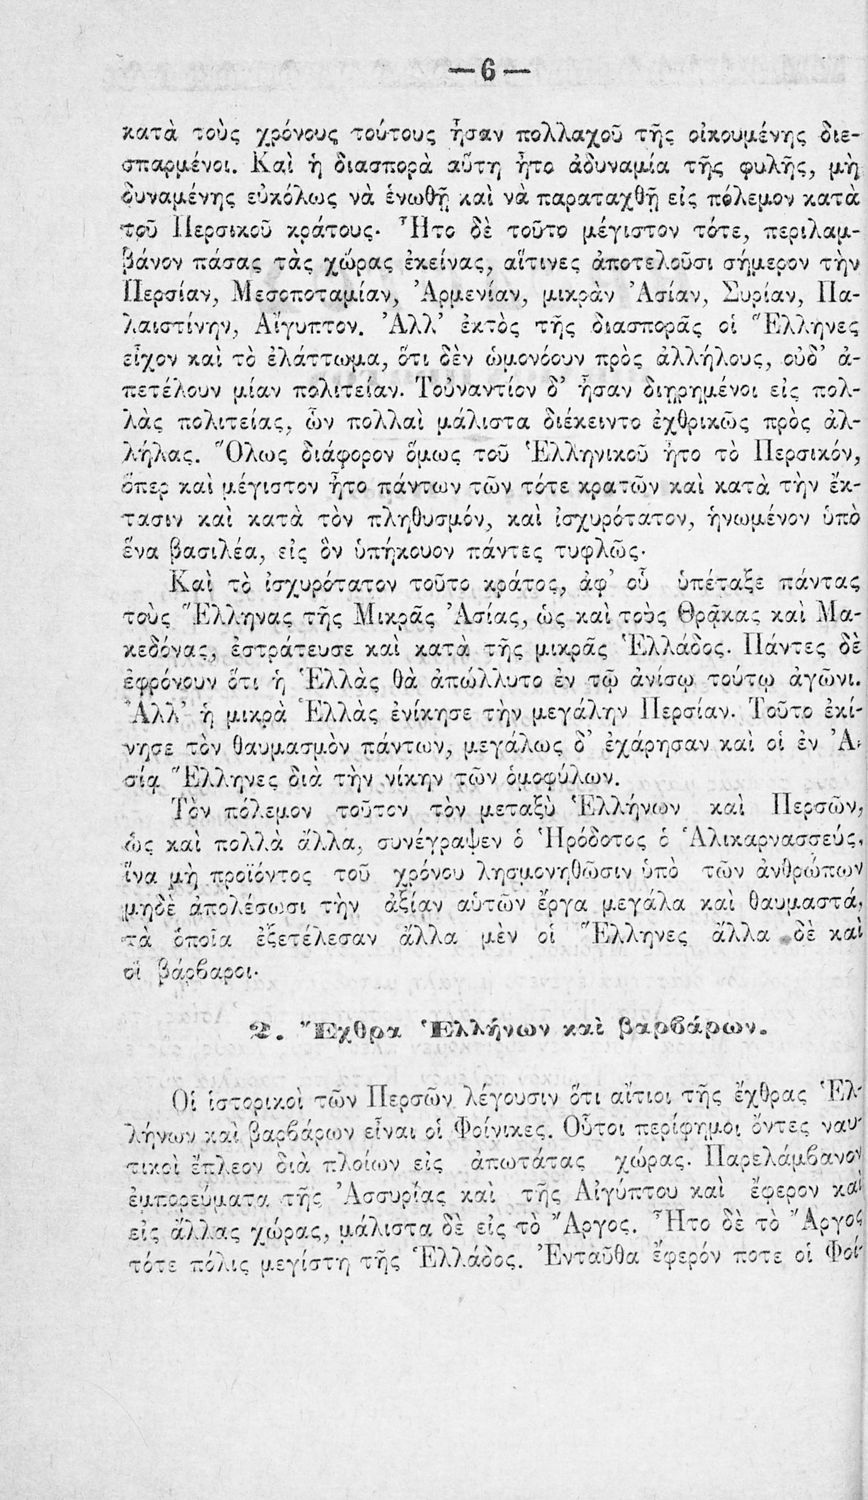 —6—
κατὰ τοὺς χρόνους τούτους ἦσαν πολλαχοῦ τῆς οἰκουμένης διε-
σπαρμένοι. Καὶ ἡ διασπορὰ αὕτη ἦτο ἀδυναμία τῆς φυλῆς, μὴ
δυναμένης εὐκόλως νὰ ἑνωθῇ καὶ νὰ παραταχθῇ εἰς πόλεμον κατὰ
τοῦ Περσικοῦ κράτους· Ἦτο δὲ τοῦτο μέγιστον τότε, περιλαμ-
βάνον πάσας τὰς χώρας ἐκείνας, αἵτινες ἀποτελοῦσι σήμερον τὴν
Περσίαν, Μεσοποταμίαν, Ἀρμενίαν, μικρὰν Ἀσίαν, Συρίαν, Πα-
λαιστίνην, Αἴγυπτον. Ἀλλ' ἐκτὸς τῆς διασπορᾶς οἱ Ἕλληνες
εἶχον καὶ τὸ ἐλάττωμα, ὅτι δὲν ὡμονόουν πρὸς ἀλλήλους, οὐδ' ἀ-
πετέλουν μίαν πολιτείαν. Τοὐναντίον δ' ἦσαν διῃρημένοι εἰς πολ-
λὰς πολιτείας, ὧν πολλαὶ μάλιστα διέκειντο ἐχθρικῶς πρὸς ἀλ-
λήλας. Ὅλως διάφορον ὅμως τοῦ Ἑλληνικοῦ ἦτο τὸ Περσικόν,
ὅπερ καὶ μέγιστον ἦτο πάντων τῶν τότε κρατῶν καὶ κατὰ τὴν ἔκ-
τασιν καὶ κατὰ τὸν πληθυσμόν, καὶ ἰσχυρότατον, ἡνωμένον ὑπὸ
ἕνα βασιλέα, εἰς ὃν ὑπήκουον πάντες τυφλῶς·
Καὶ τὸ ἰσχυρότατον τοῦτο κράτος, ἀφ' οὗ ὑπέταξε πάντας
τοὺς Ἕλληνας τῆς Μικρᾶς Ἀσίας, ὡς καὶ τοὺς Θρᾷκας καὶ Μα-
κεδόνας, ἐστράτευσε καὶ κατὰ τῆς μικρᾶς Ἑλλάδος· Πάντες δὲ
ἐφρόνουν ὅτι ἡ Ἑλλὰς θὰ ἀπώλλυτο ἐν τῷ ἀνίσῳ τούτῳ ἀγῶνι.
Ἀλλ' ἡ μικρὰ Ἑλλὰς ἐνίκησε τὴν μεγάλην Περσίαν. Τοῦτο ἐκί-
νησε τὸν θαυμασμὸν πάντων, μεγάλως δ' ἐχάρησαν καὶ οἱ ἐν Ἀ-
σίᾳ Ἕλληνες διὰ τὴν νίκην τῶν ὁμοφύλων.
Τὸν πόλεμον τοῦτον τὸν μεταξὺ Ἑλλήνων καὶ Περσῶν,
ὡς καὶ πολλὰ ἄλλα, συνέγραψεν ὁ Ἡρόδοτος ὁ Ἁλικαρνασσεύς,
ἵνα μὴ προϊόντος τοῦ χρόνου λησμονηθῶσιν ὑπὸ τῶν ἀνθρώπων
μηδὲ ἀπολέσωσι τὴν ἀξίαν αὑτῶν ἔργα μεγάλα καὶ θαυμαστά,
τὰ ὁποῖα ἐξετέλεσαν ἄλλα μὲν οἱ Ἕλληνες ἄλλα δὲ καὶ
οἱ βάρβαροι·
2. Ἔχθρα Ἑλλήνων καὶ βαρβάρων.
Οἱ ἱστορικοὶ τῶν Περσῶν λέγουσιν ὅτι αἴτιοι τῆς ἔχθρας Ἑλ-
λήνων καὶ βαρβάρων εἶναι οἱ Φοίνικες. Οὗτοι περίφημοι ὄντες ναυ-
τικοὶ ἔπλεον διὰ πλοίων εἰς ἀπωτάτας χώρας· Παρελάμβανον
ἐμπορεύματα τῆς Ἀσσυρίας καὶ τῆς Αἰγύπτου καὶ ἔφερον καὶ
εἰς ἄλλας χώρας, μάλιστα δὲ εἰς τὸ Ἄργος. Ἦτο δὲ τὸ Ἄργος
τότε πόλις μεγίστη τῆς Ἑλλάδος. Ἐνταῦθα ἔφερόν ποτε οἱ Φοί-